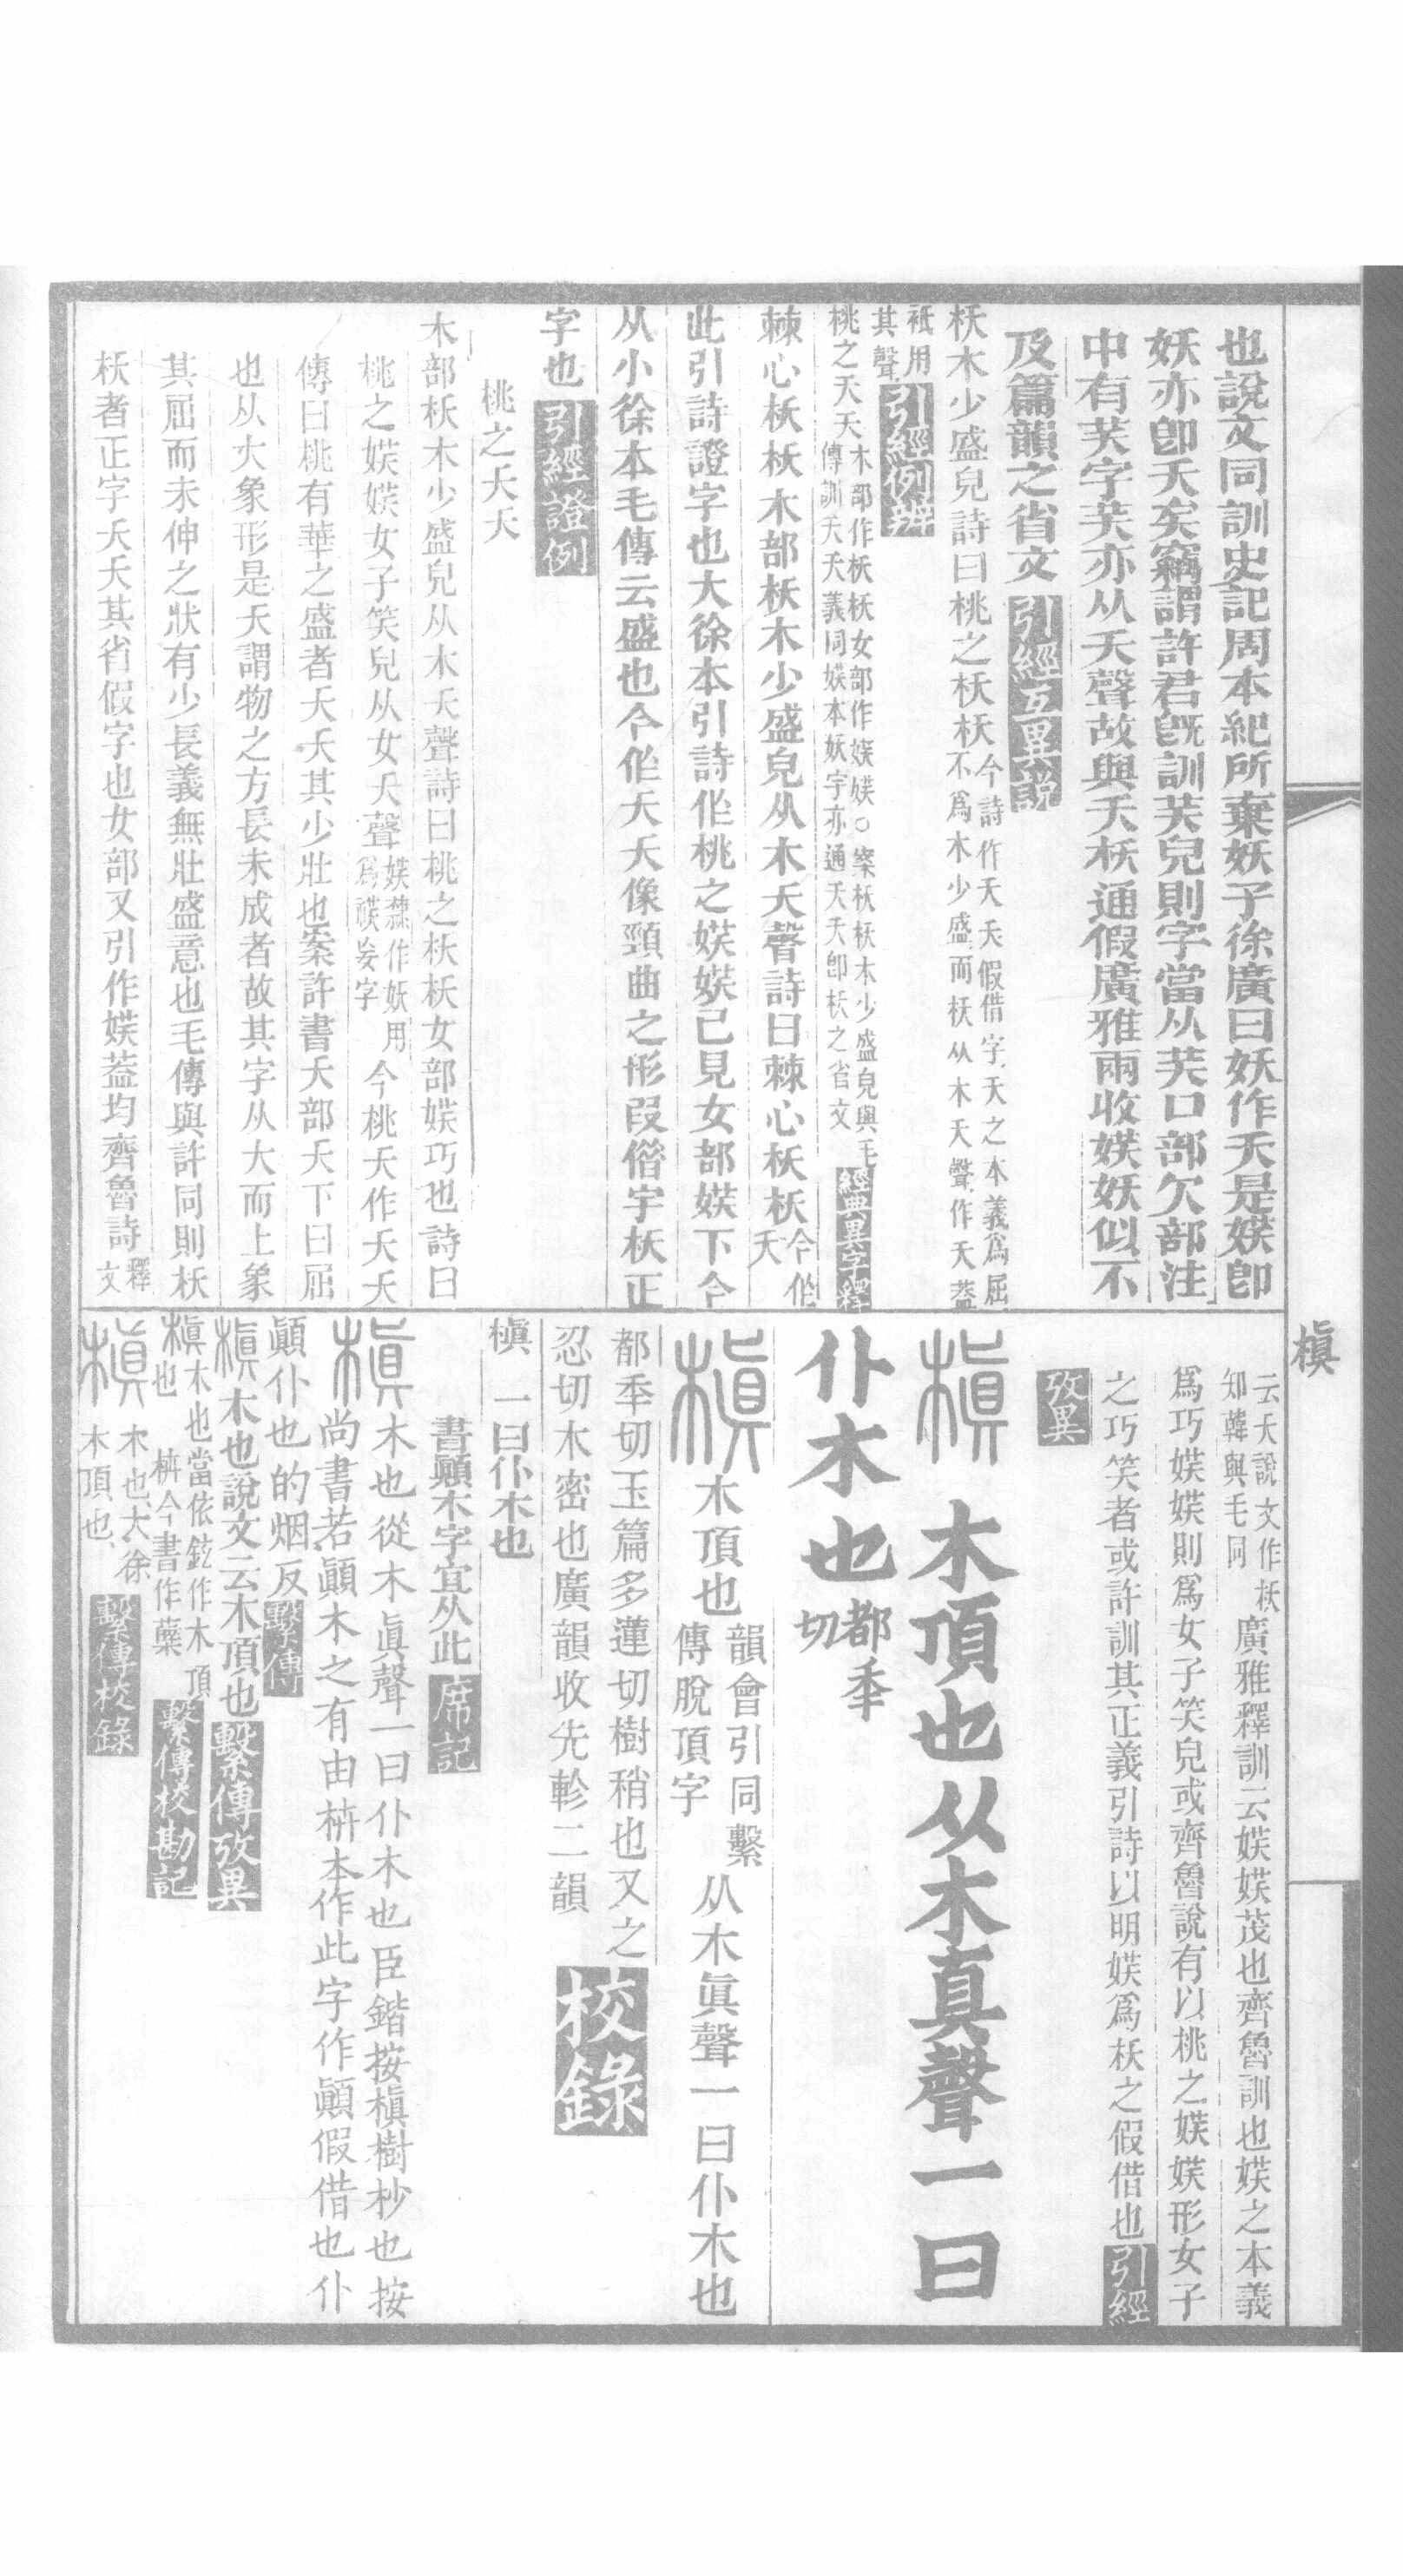 也說文同訓史記周本紀所棄妖子徐廣曰妖作夭是媄卽
妖亦卽夭矣竊謂許君旣訓芺皃則字當从芺口部欠部注
中有芺字芺亦从夭聲故與夭枖通假廣雅兩收媄妖似不
及篇韻之省文 引經互異說
枖木少盛皃詩曰桃之枖枖今詩作夭夭假借字夭之本義爲屈
不爲木少盛而枖从木夭聲作夭葢
祗用
其聲 引經例辨
桃之夭夭木部作枖枖女部作媄媄○案枖枖木少盛皃與毛
傳訓夭夭義同媄本妖字亦通夭夭卽枖之省文 經典異字釋
棘心枖枖木部枖木少盛皃从木夭聲詩曰棘心枖枖今作夭
此引詩證字也大徐本引詩作桃之媄媄已見女部媄下今
从小徐本毛傳云盛也今作夭夭像頸曲之形叚僭字枖正
字也 引經證例
桃之夭夭
木部枖木少盛皃从木夭聲詩曰桃之枖枖女部媄巧也詩曰
桃之媄媄女子笑皃从女夭聲媄隸作妖用爲䄏㚣字今桃夭作夭夭
傳曰桃有華之盛者夭夭其少壯也案許書夭部夭下曰屈
也从大象形是夭謂物之方長未成者故其字从大而上象
其屈而未伸之狀有少長義無壯盛意也毛傳與許同則枖
枖者正字夭夭其省假字也女部又引作媄葢均齊魯詩釋文
云夭說文作枖
知韓與毛同
廣雅釋訓云媄媄茂也齊魯訓也媄之本義
爲巧媄媄則爲女子笑皃或齊魯說有以桃之媄媄形女子
之巧笑者或許訓其正義引詩以明媄爲枖之假借也 引經
攷異
槙 木頂也从木真聲一曰
仆木也都秊切
槙木頂也韻會引同繫傳脫頂字从木眞聲一曰仆木也
都秊切玉篇多蓮切樹稍也又之
忍切木密也廣韻收先軫二韻 校錄
槙 一曰仆木也
書顚木字宜从此 席記
槙木也從木眞聲一曰仆木也臣鍇按槙樹杪也按
尚書若顚木之有由枿本作此字作顚假借也仆
顚仆也的烟反 繫傳
槙木也說文云木頂也 繫傳攷異
槙木也當依鉉作木頂
也枿今書作蘖 繫傳校勘記
槙木也大徐
木頂也 繫傳校錄
槙